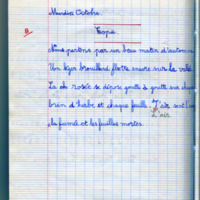 Mardi Octobre
Copie
Nous partons par un beau matin d'automne.
Un léger brouillard flotte encore sur la vallé
La ros rosée se dépose goutte à goutte sur chaque
brin d'herbe et chaque feuille L'air sent
L'air
la fumée et les feuilles mortes.